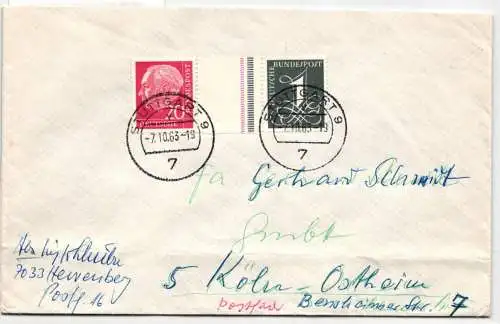 20
DEUTSCHE BUNDESPOST
1
STUTTGART 9
-7.10.63-19
7
STUTTGART 9
-7.10.63-19
7
Fa Gerhard Schmidt
GmbH
5 Köln-Ostheim
Postfach
7
7033 Herrenberg
Postf 16